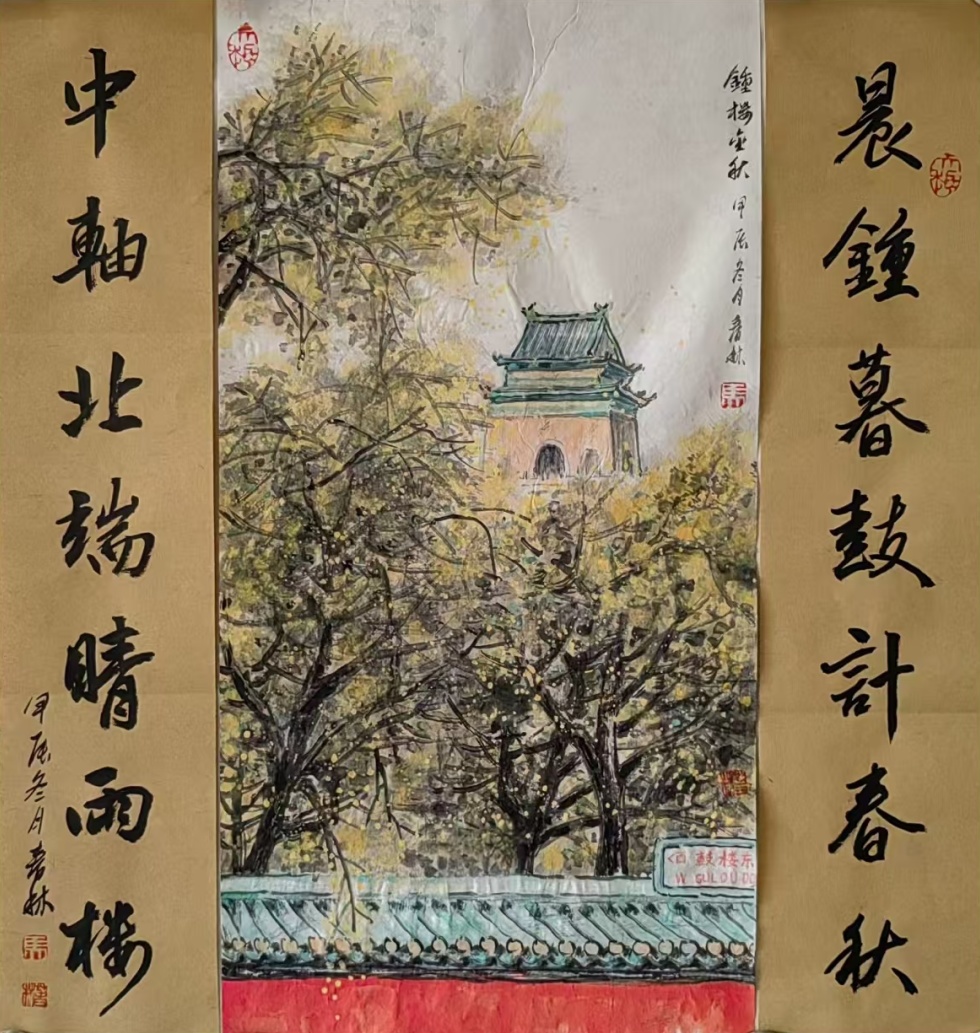 晨鐘暮鼓計春秋
中軸北端晴雨樓
甲辰冬月春林
鐘楼金秋 甲辰冬月春林
西 鼓楼东
W GULOUDO